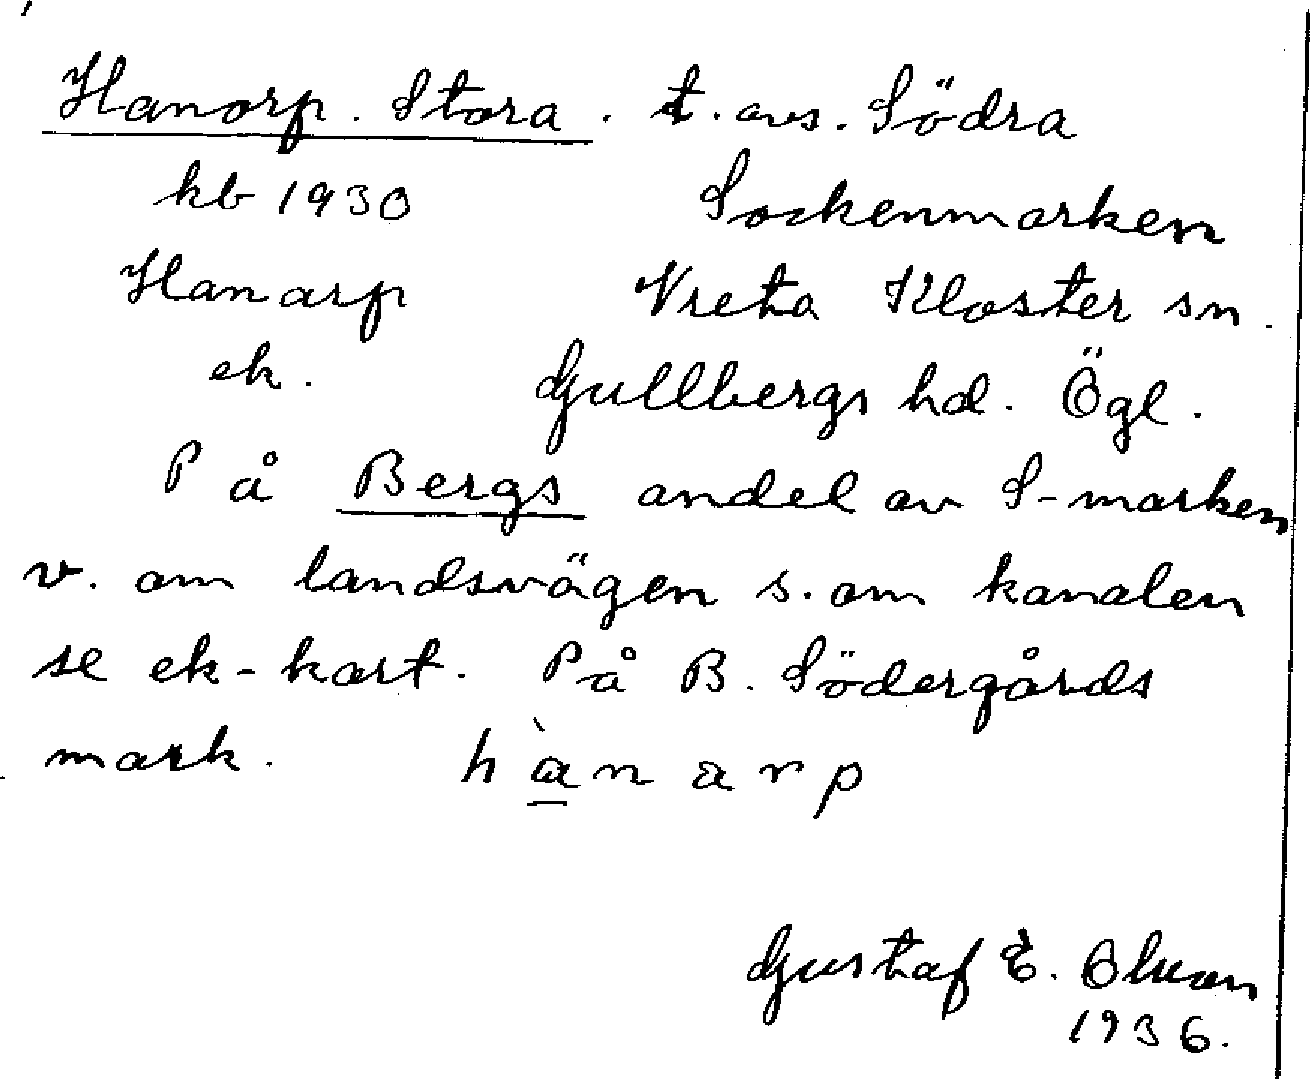 Hanorp. Stora. t. avs. Södra
kb 1930 Sockenmarken
Hanarp Vreta Kloster sn.
ek. Gullbergs hd. Ögl.
På Bergs andel av S-marken
v. om landsvägen s. om kanalen
se ek-kart. På B. Södergårds
mark. hànarp
Gustaf E. Olson
1936.